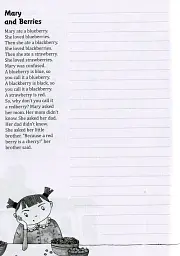 Mary
and Berries
Mary ate a blueberry.
She loved blueberries.
Then she ate a blackberry.
She loved blackberries.
Then she ate a strawberry.
She loved strawberries.
Mary was confused.
A blueberry is blue, so
you call it a blueberry.
A blackberry is black, so
you call it a blackberry.
A strawberry is red.
So, why don't you call it
a redberry? Mary asked
her mom. Her mom didn't
know. She asked her dad.
Her dad didn't know.
She asked her little
brother. "Because a red
berry is a cherry!" her
brother said.